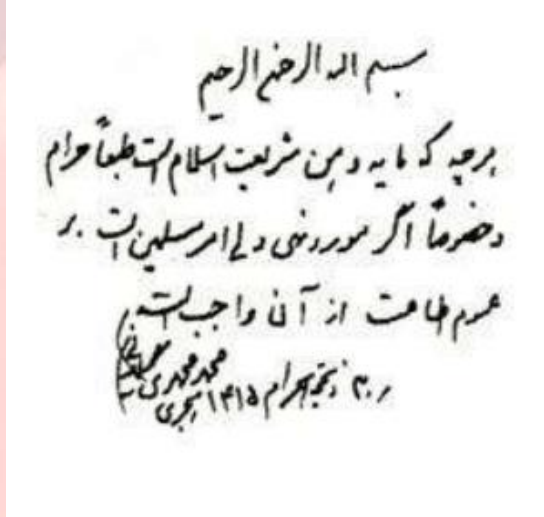 بسم الله الرحمن الرحیم
هرچه که مایه وهن شریعت اسلام است طبعاً حرام
و خصوصاً اگر مورد نهی ولی امر مسلمین است بر
عموم طاعت از آن واجب است
محمد محمدی گیلانی
۲۰ ذیحجةالحرام ۱۴۱۵ هجری